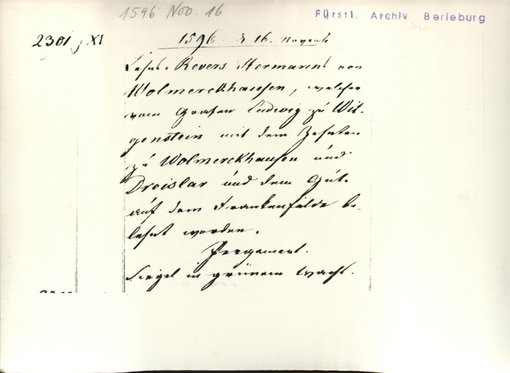 1596 Nov. 16
Fürstl. Archiv Berleburg
2301 XI
1596 d 16. Novemb
Lehns-Revers Hermanns von
Wolmerckhausen, welcher
vom Grafen Ludwig zu Wit-
genstein mit dem Zehnten
zu Wolmerckhausen und
Dreislar und dem Gut
auf dem Frankenfelde be-
lehnt worden.
Pergament.
Siegel in grünem Wachs.